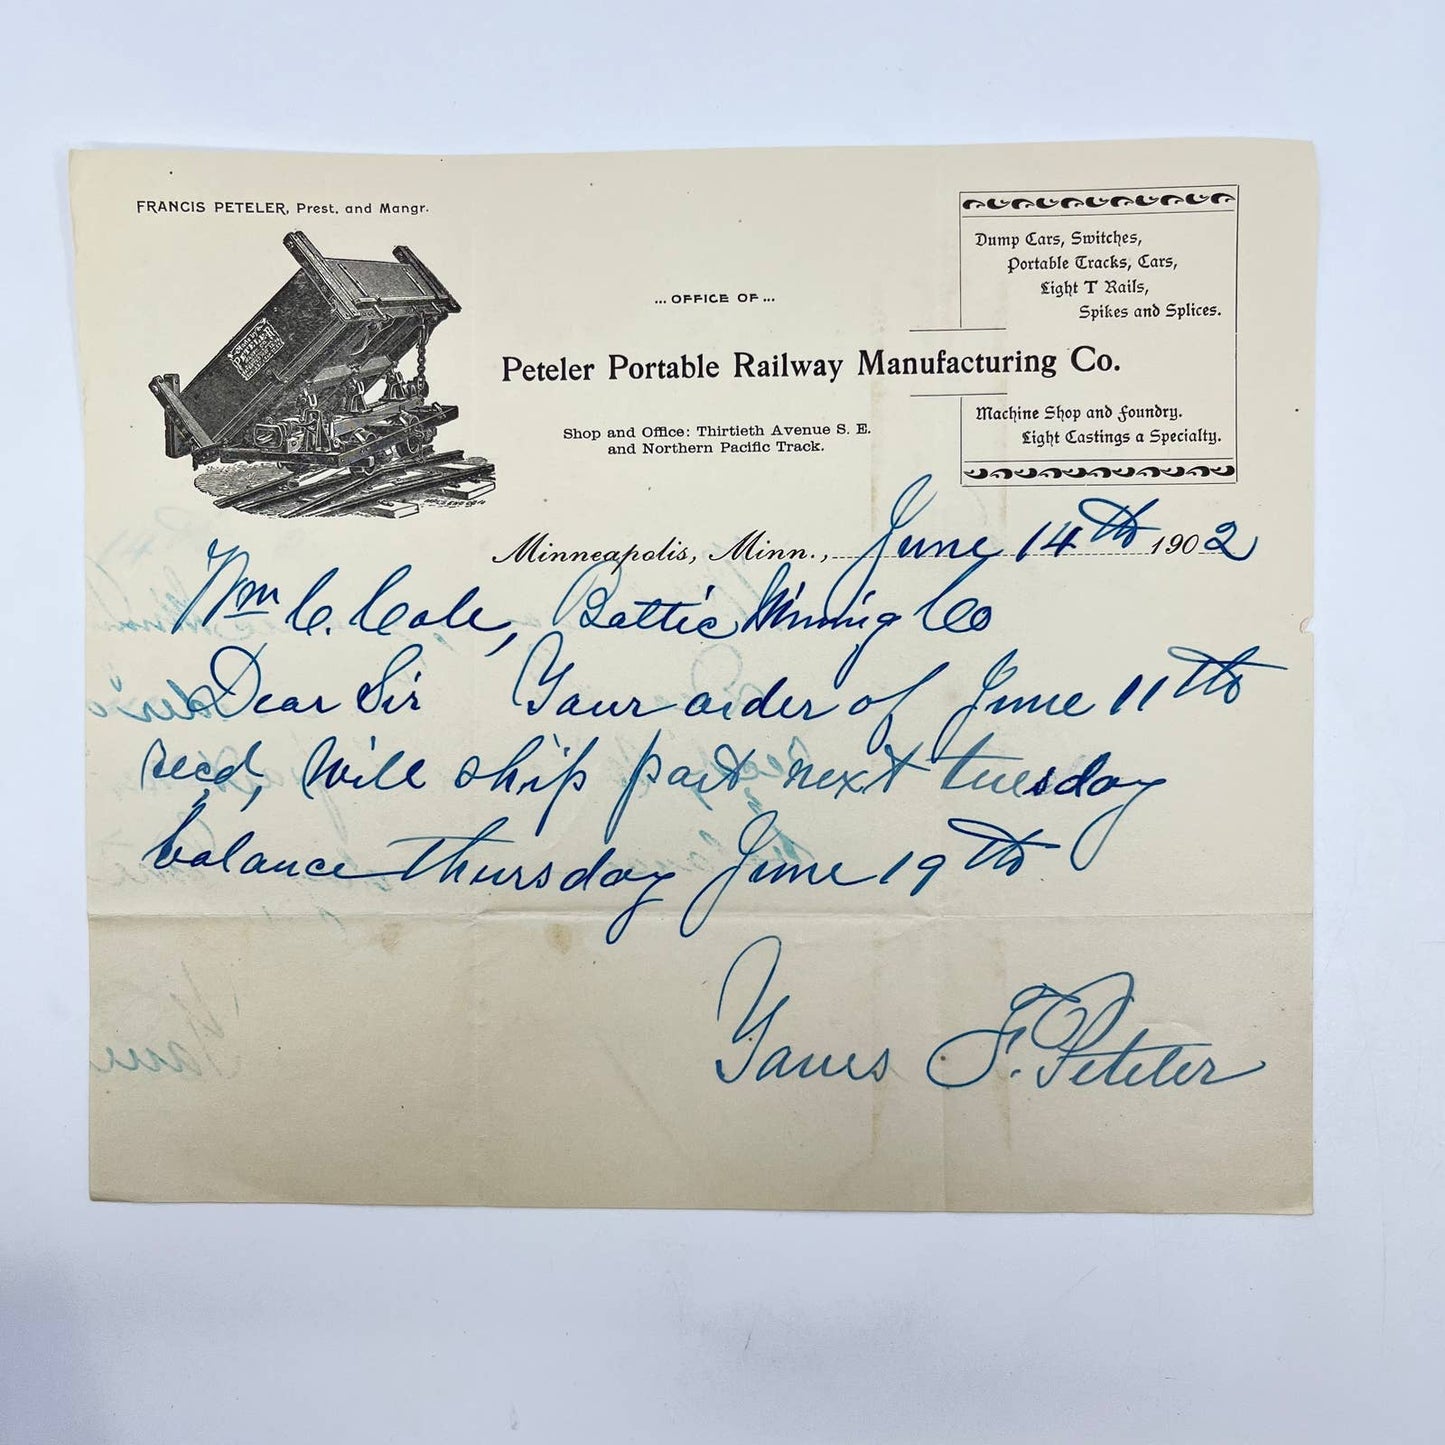 FRANCIS PETELER, Prest. and Mangr.
Made by
PETELER
... OFFICE OF ...
Peteler Portable Railway Manufacturing Co.
Shop and Office: Thirtieth Avenue S. E.
and Northern Pacific Track.
Dump Cars, Switches,
Portable Tracks, Cars,
Light T Rails,
Spikes and Splices.
Machine Shop and Foundry.
Light Castings a Specialty.
Minneapolis, Minn., June 14th 1902
Wm C. Cole, Baltic Mining Co
Dear Sir Your order of June 11th
recd, Will ship part next tuesday
balance thursday June 19th
Yours F. Peteler